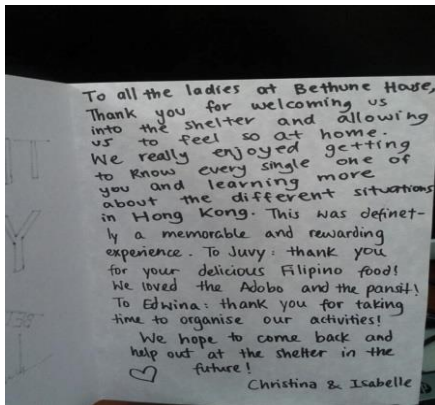 To all the ladies at Bethune House,
Thank you for welcoming us
into the shelter and allowing
us to feel so at home.
We really enjoyed getting
to know every single one of
you and learning more
about the different situations
in Hong Kong. This was definet-
ly a memorable and rewarding
experience. To Juvy: thank you
for your delicious Filipino food!
We loved the Adobo and the pansit!
To Edwina: thank you for taking
time to organise our activities!
We hope to come back and
help out at the shelter in the
future!
Christina & Isabelle